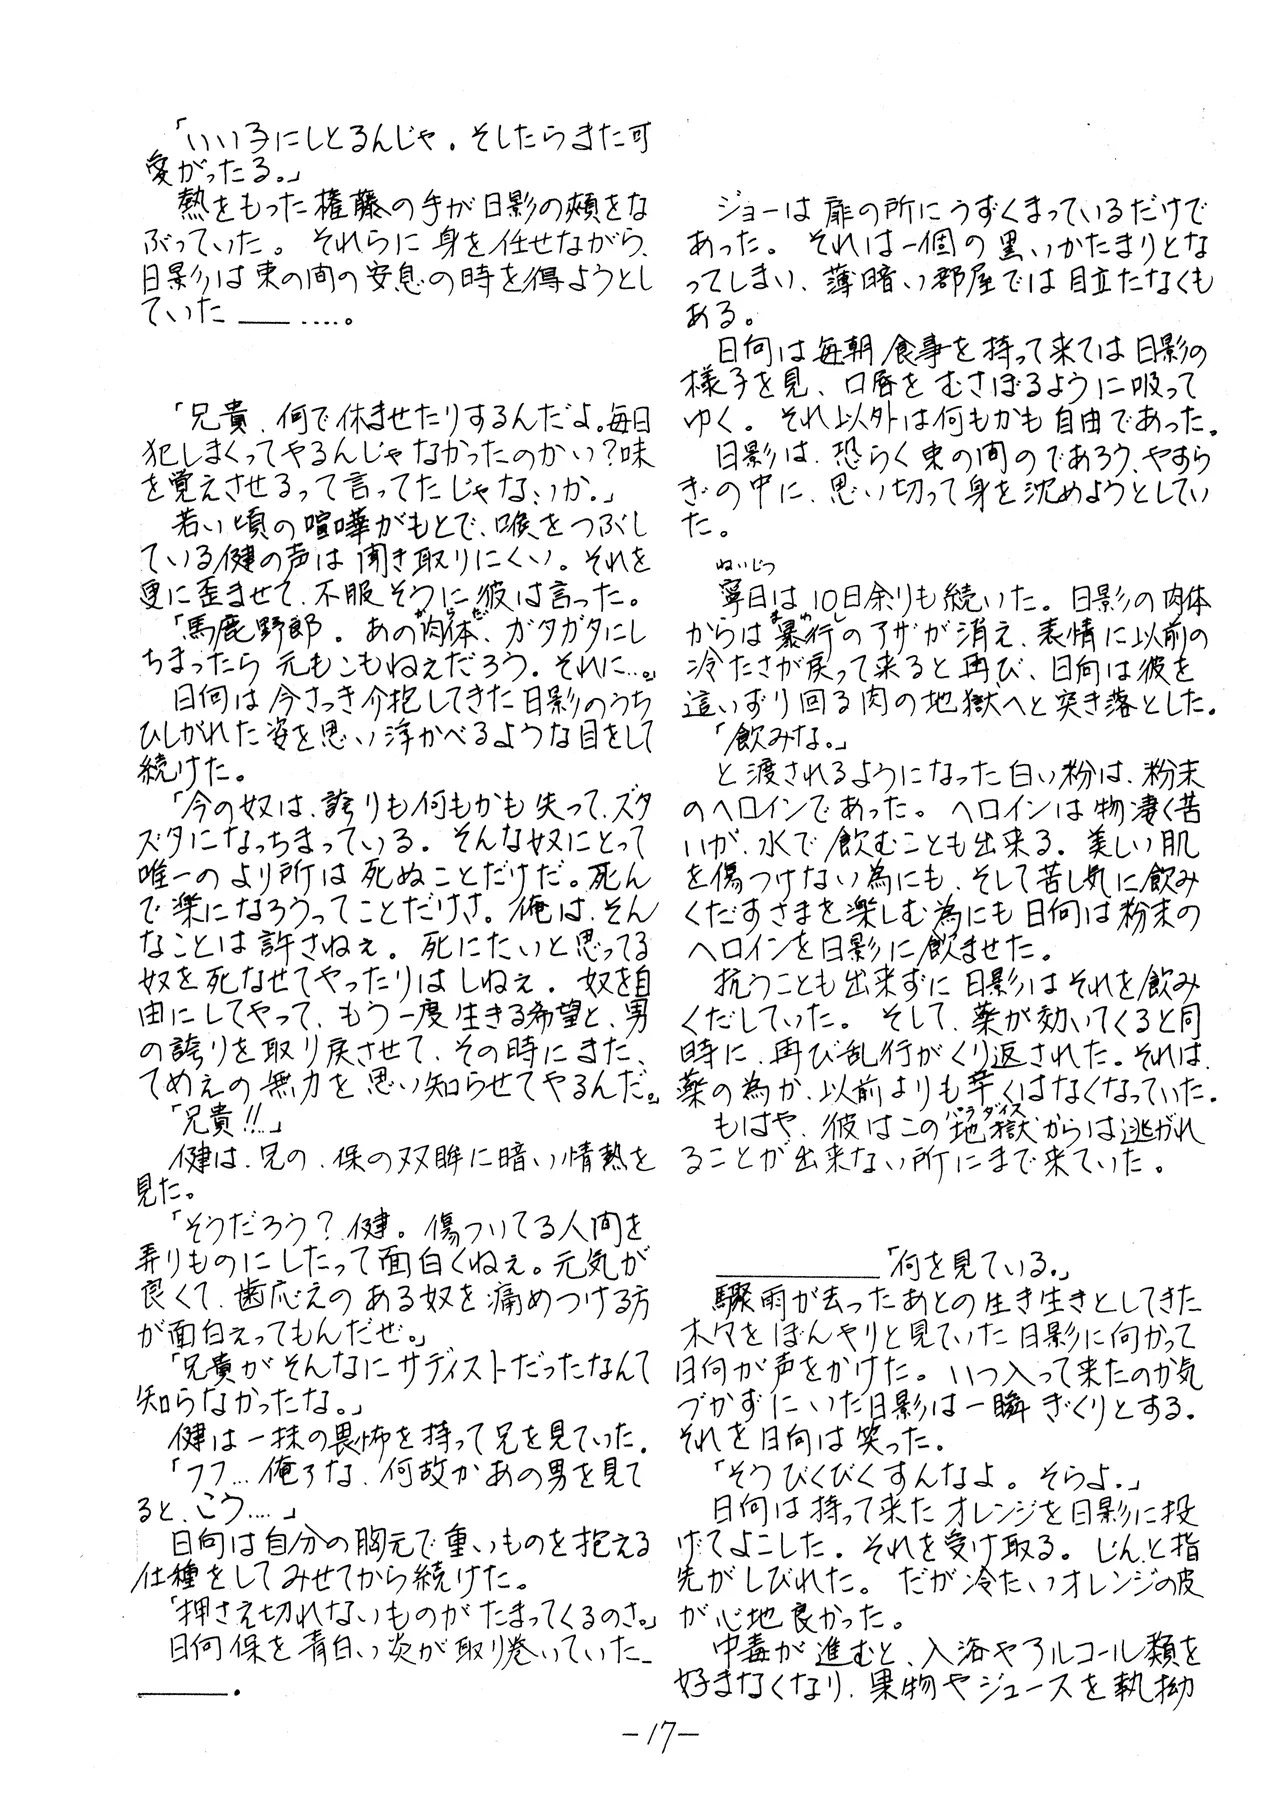 「いい子にしとるんじゃ。そしたらまた可
愛がったる。」
熱をもった権藤の手が日影の頬をな
ぶっていた。それらに身を任せながら、
日影は束の間の安息の時を得ようとし
ていた――‥‥。
「兄貴、何で休ませたりするんだよ。毎日
犯しまくってやるんじゃなかったのかい?味
を覚えさせるって言ってたじゃないか。」
若い頃の喧嘩がもとで、喉をつぶし
ている健の声は聞き取りにくい。それを
更に歪ませて、不服そうに彼は言った。
からだ
「馬鹿野郎。あの肉体、ガタガタにし
ちまったら元もこもねえだろう。それに…。」
日向は今さっき介抱してきた日影のうち
ひしがれた姿を思い浮かべるような目をして
続けた。
「今の奴は、誇りも何もかも失って、ズタ
ズタになっちまっている。そんな奴にとって
唯一のより所は死ぬことだけだ。死ん
で楽になろうってことだけさ。俺は、そん
なことは許さねぇ。死にたいと思ってる
奴を死なせてやったりはしねぇ。奴を自
由にしてやって、もう一度生きる希望と、男
の誇りを取り戻させて、その時にまた、
てめえの無力を思い知らせてやるんだ。」
「兄貴!!‥」
健は、兄の、保の双眸に暗い情熱を
見た。
「そうだろう?健。傷ついてる人間を
弄りものにしたって面白くねぇ。元気が
良くて、歯応えのある奴を痛めつける方
が面白えってもんだぜ。」
「兄貴がそんなにサディストだったなんて
知らなかったな。」
健は一抹の畏怖を持って兄を見ていた。
「フフ…俺ァな、何故かあの男を見て
ると、こう‥‥」
日向は自分の胸元で重いものを抱える
仕種をしてみせてから続けた。
「押さえ切れないものがたまってくるのさ。」
日向保を青白い炎が取り巻いていた―
――。
ジョーは扉の所にうずくまっているだけで
あった。それは一個の黒いかたまりとな
ってしまい、薄暗い部屋では目立たなくも
ある。
日向は毎朝食事を持って来ては日影の
様子を見、口唇をむさぼるように吸って
ゆく。それ以外は何もかも自由であった。
日影は、恐らく束の間のであろう、やすら
ぎの中に、思い切って身を沈めようとしてい
た。
ねいじつ
寧日は10日余りも続いた。日影の肉体
まわし
からは暴行のアザが消え、表情に以前の
冷たさが戻って来ると再び、日向は彼を
這いずり回る肉の地獄へと突き落とした。
「飲みな。」
と渡されるようになった白い粉は、粉末
のヘロインであった。ヘロインは物凄く苦
いが、水で飲むことも出来る。美しい肌
を傷つけない為にも、そして苦し気に飲み
くだすさまを楽しむ為にも日向は粉末の
ヘロインを日影に飲ませた。
抗うことも出来ずに日影はそれを飲み
くだしていた。そして、薬が効いてくると同
時に、再び乱行がくり返された。それは、
薬の為か、以前よりも辛くはなくなっていた。
パラダイス
もはや、彼はこの地獄からは逃がれ
ることが出来ない所にまで来ていた。
――――「何を見ている。」
驟雨が去ったあとの生き生きとしてきた
木々をぼんやりと見ていた日影に向かって
日向が声をかけた。いつ入って来たのか気
づかずにいた日影は一瞬ぎくりとする。
それを日向は笑った。
「そうびくびくすんなよ。そらよ。」
日向は持って来たオレンジを日影に投
げてよこした。それを受け取る。じんと指
先がしびれた。だが冷たいオレンジの皮
が心地良かった。
中毒が進むと、入浴やアルコール類を
好まなくなり、果物やジュースを執拗
-17-